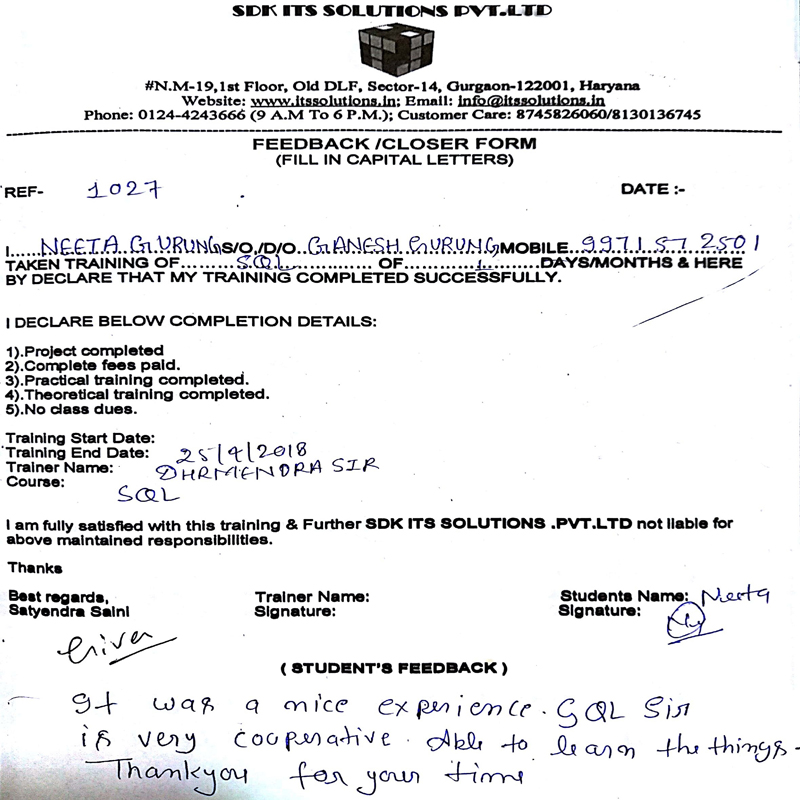 SDK ITS SOLUTIONS PVT.LTD
#N.M-19,1st Floor, Old DLF, Sector-14, Gurgaon-122001, Haryana
Website: www.itssolutions.in; Email: info@itssolutions.in
Phone: 0124-4243666 (9 A.M To 6 P.M.); Customer Care: 8745826060/8130136745
FEEDBACK /CLOSER FORM
(FILL IN CAPITAL LETTERS)
REF- 1027 DATE :-
I......NEETA GURUNG S/O./D/O..GANESH GURUNG MOBILE..9971572501
TAKEN TRAINING OF.........SQL............... OF...........1..........DAYS/MONTHS & HERE
BY DECLARE THAT MY TRAINING COMPLETED SUCCESSFULLY.
I DECLARE BELOW COMPLETION DETAILS:
1).Project completed
2).Complete fees paid.
3).Practical training completed.
4).Theoretical training completed.
5).No class dues.
Training Start Date:
Training End Date: 25/4/2018
Trainer Name: DHRMENDRA SIR
Course: SQL
I am fully satisfied with this training & Further SDK ITS SOLUTIONS .PVT.LTD not liable for
above maintained responsibilities.
Thanks
Best regards, Trainer Name: Students Name: Neeta
Satyendra Saini Signature: Signature:
( STUDENT'S FEEDBACK )
It was a nice experience. SQL Sir
is very cooperative. Able to learn the things.
Thankyou for your time